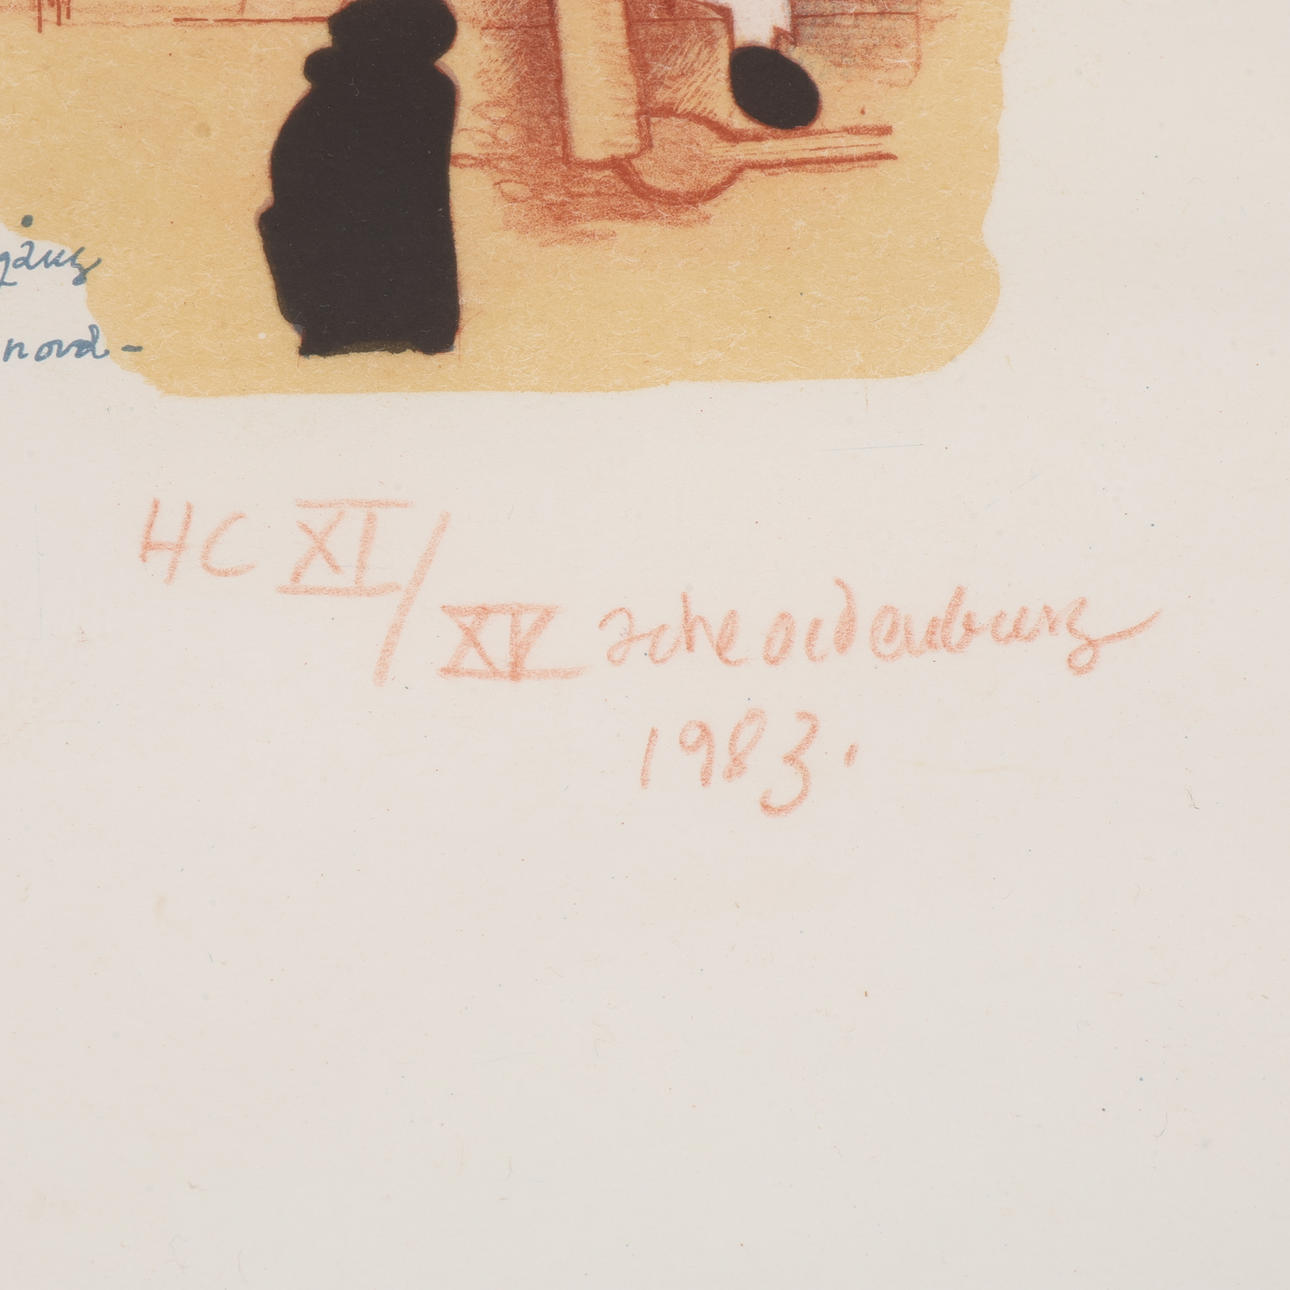 gång
nord-
HC XI/
XV Schoedenburg
1983.